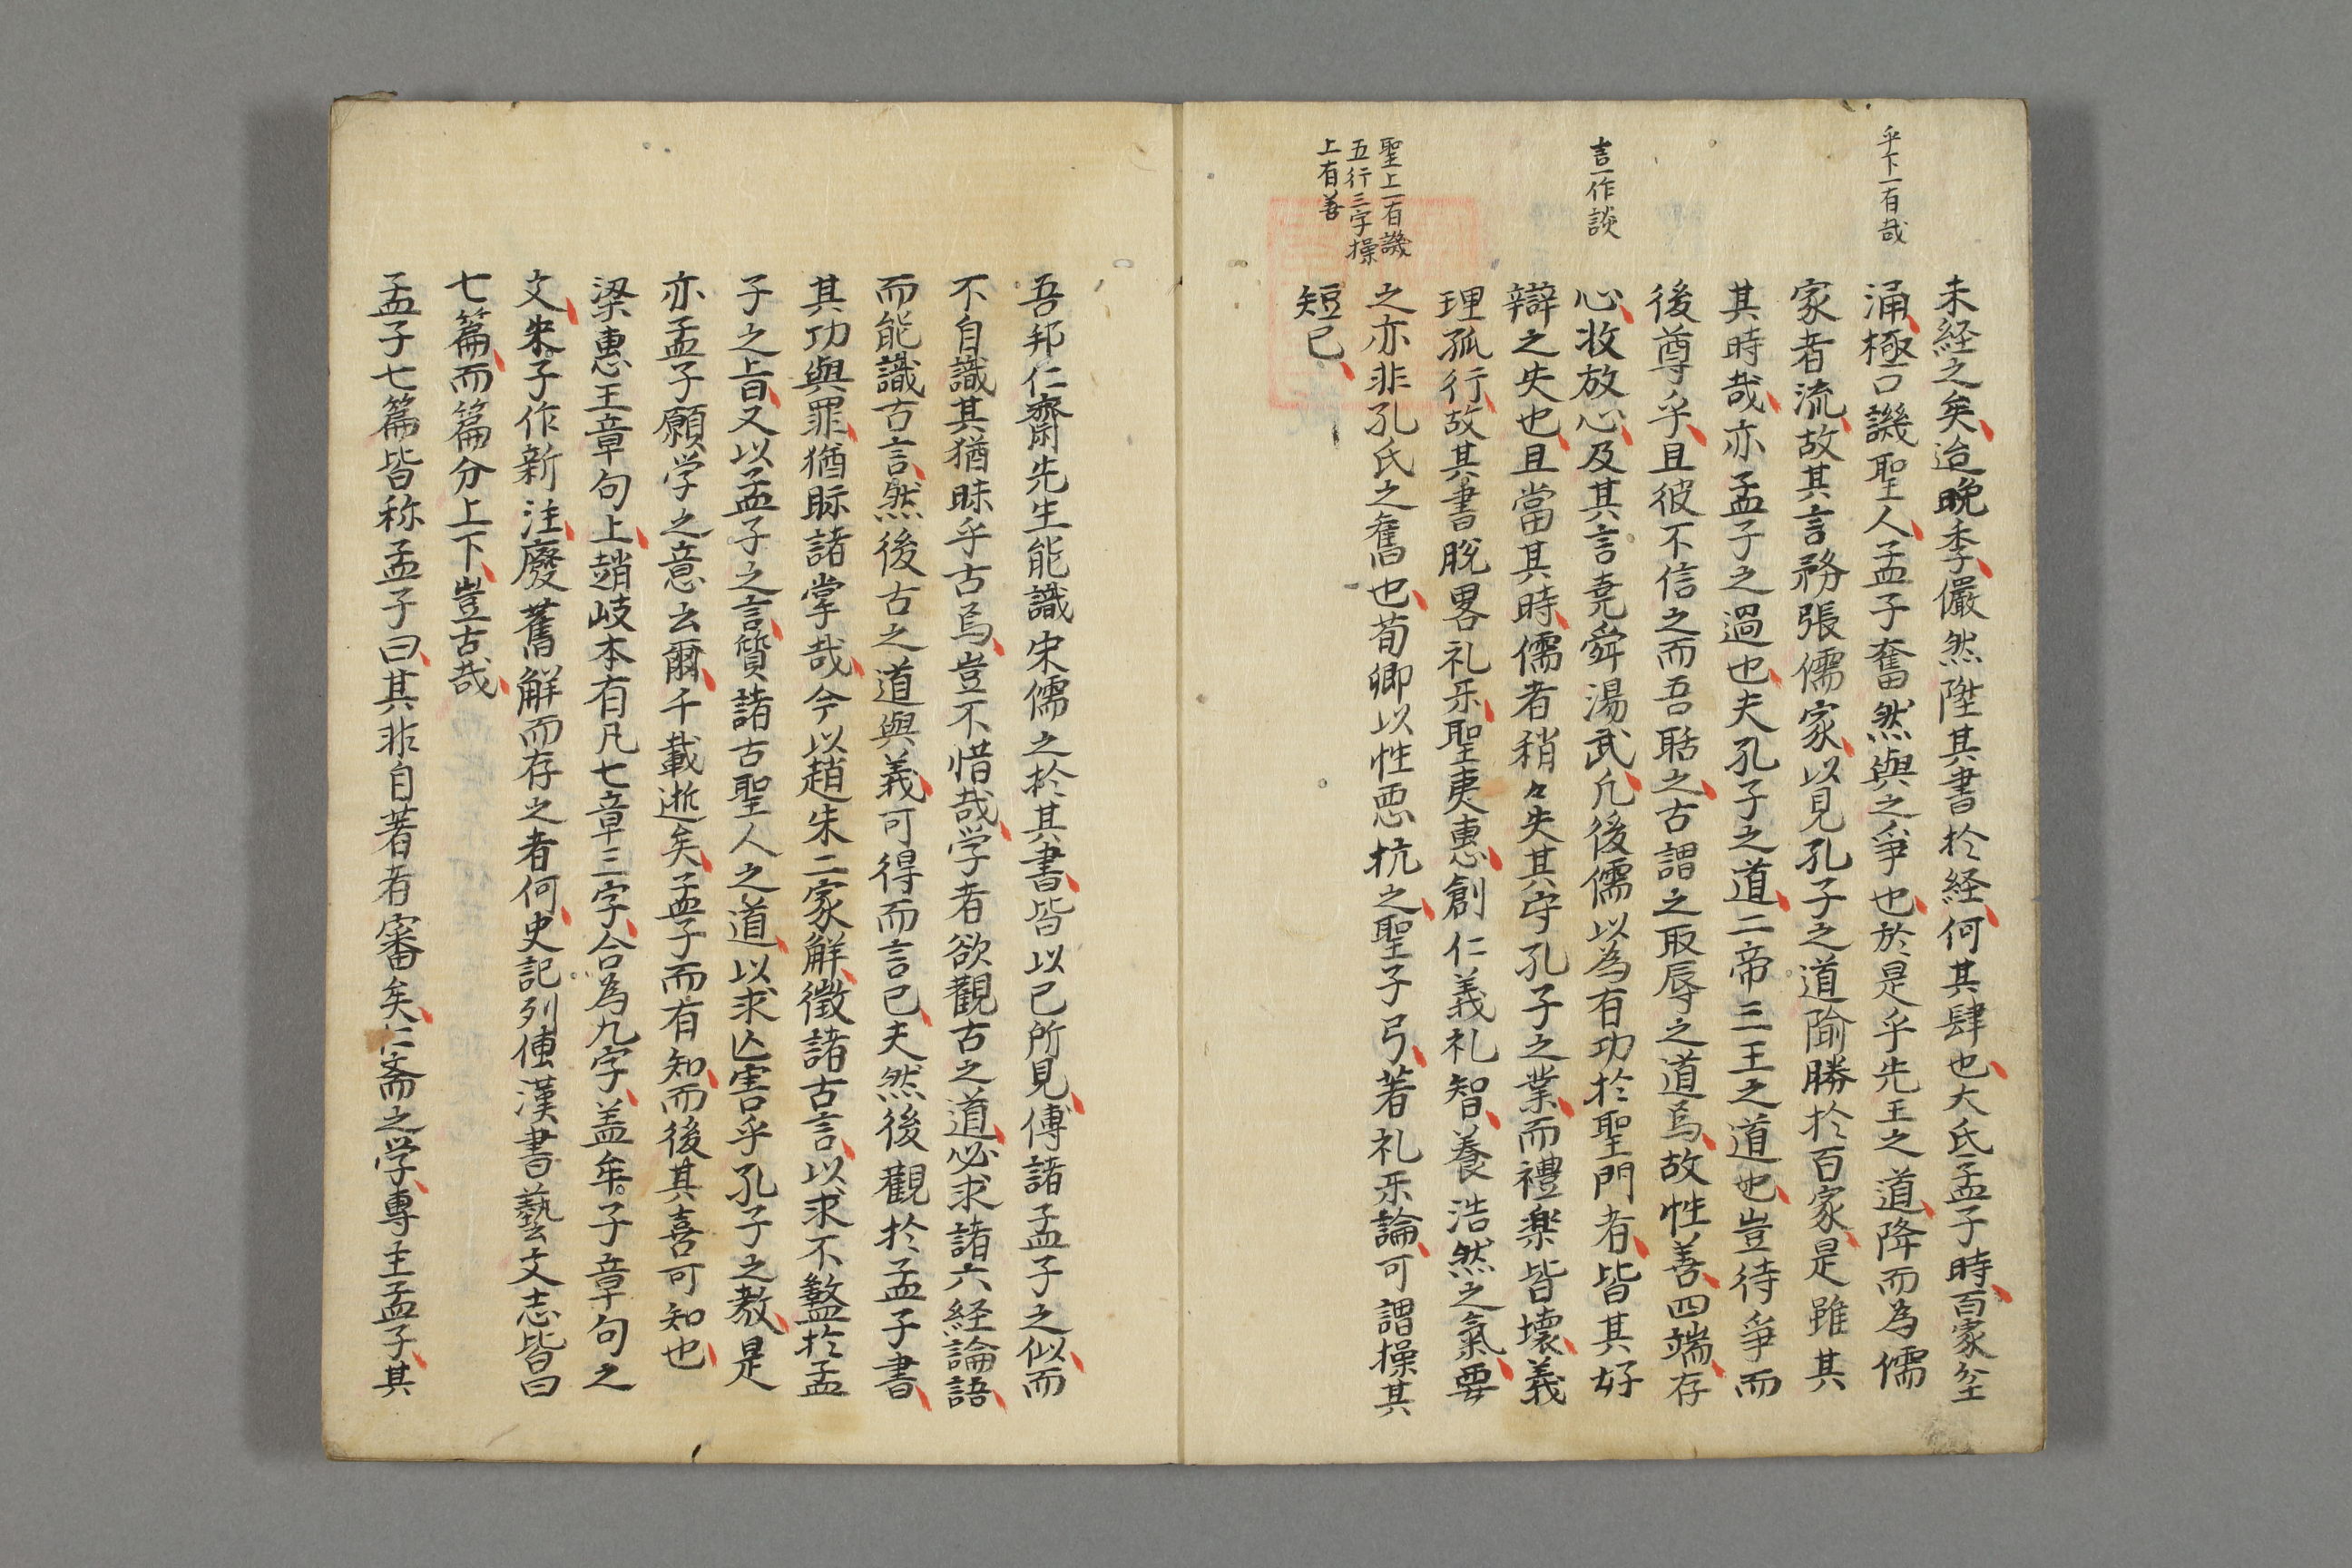 乎下一有哉
言一作談
聖上一有譏
五行三字操
上有善
未経之矣迨晩季儼然陞其書於経何其肆也大氐孟子時百家坌
涌極口譏聖人孟子奮然與之爭也於是乎先王之道降而為儒
家者流故其言務張儒家以見孔子之道隃勝於百家是雖其
其時哉亦孟子之過也夫孔子之道二帝三王之道也豈待爭而
後尊乎且彼不信之而吾聒之古謂之取辱之道焉故性善四端存
心收放心及其言堯舜湯武凢後儒以為有功於聖門者皆其好
辯之失也且當其時儒者稍々失其守孔子之業而禮楽皆壊義
理孤行故其書脫畧礼乐聖夷惠創仁義礼智養浩然之氣要
之亦非孔氏之舊也荀卿以性悪抗之聖子弓著礼乐論可謂操其
短已
吾邦仁齋先生能識宋儒之於其書皆以已所見傅諸孟子之似而
不自識其猶昧乎古焉豈不惜哉学者欲觀古之道必求諸六経論語
而能識古言然後古之道與義可得而言已夫然後觀於孟子書
其功與罪猶眎諸掌哉今以趙朱二家解徵諸古言以求不盭於孟
子之旨又以孟子之言質諸古聖人之道以求亾害乎孔子之教是
亦孟子願学之意云爾千載逝矣孟子而有知而後其喜可知也
梁惠王章句上趙岐本有凡七章三字合為九字盖牟子章句之
文朱子作新注廢舊解而存之者何史記列傳漢書藝文志皆曰
七篇而篇分上下豈古哉
孟子七篇皆称孟子曰其非自著者審矣仁斎之学專主孟子其